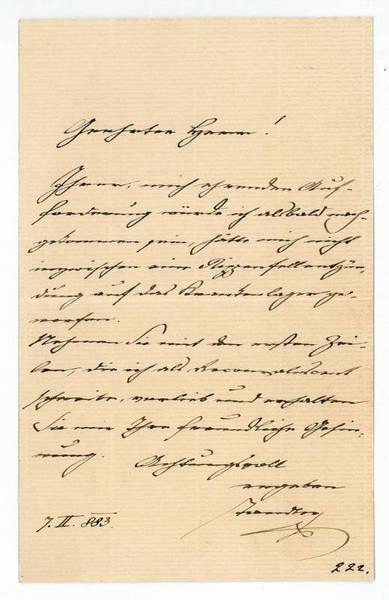 Geehrter Herr!
Ihrer, mich ehrenden Auf-
forderung würde ich alsbald nach-
gekommen sein, hätte mich nicht
inzwischen eine Rippenfellentzün-
dung auf das Krankenlager ge-
worfen.
Nehmen Sie mit den ersten Zei-
len, die ich als Reconvalescent
schreibe, vorlieb und erhalten
Sie mir Ihre freundliche Gesin-
nung.
Achtungsvoll
ergeben
7. II. 883.
222.